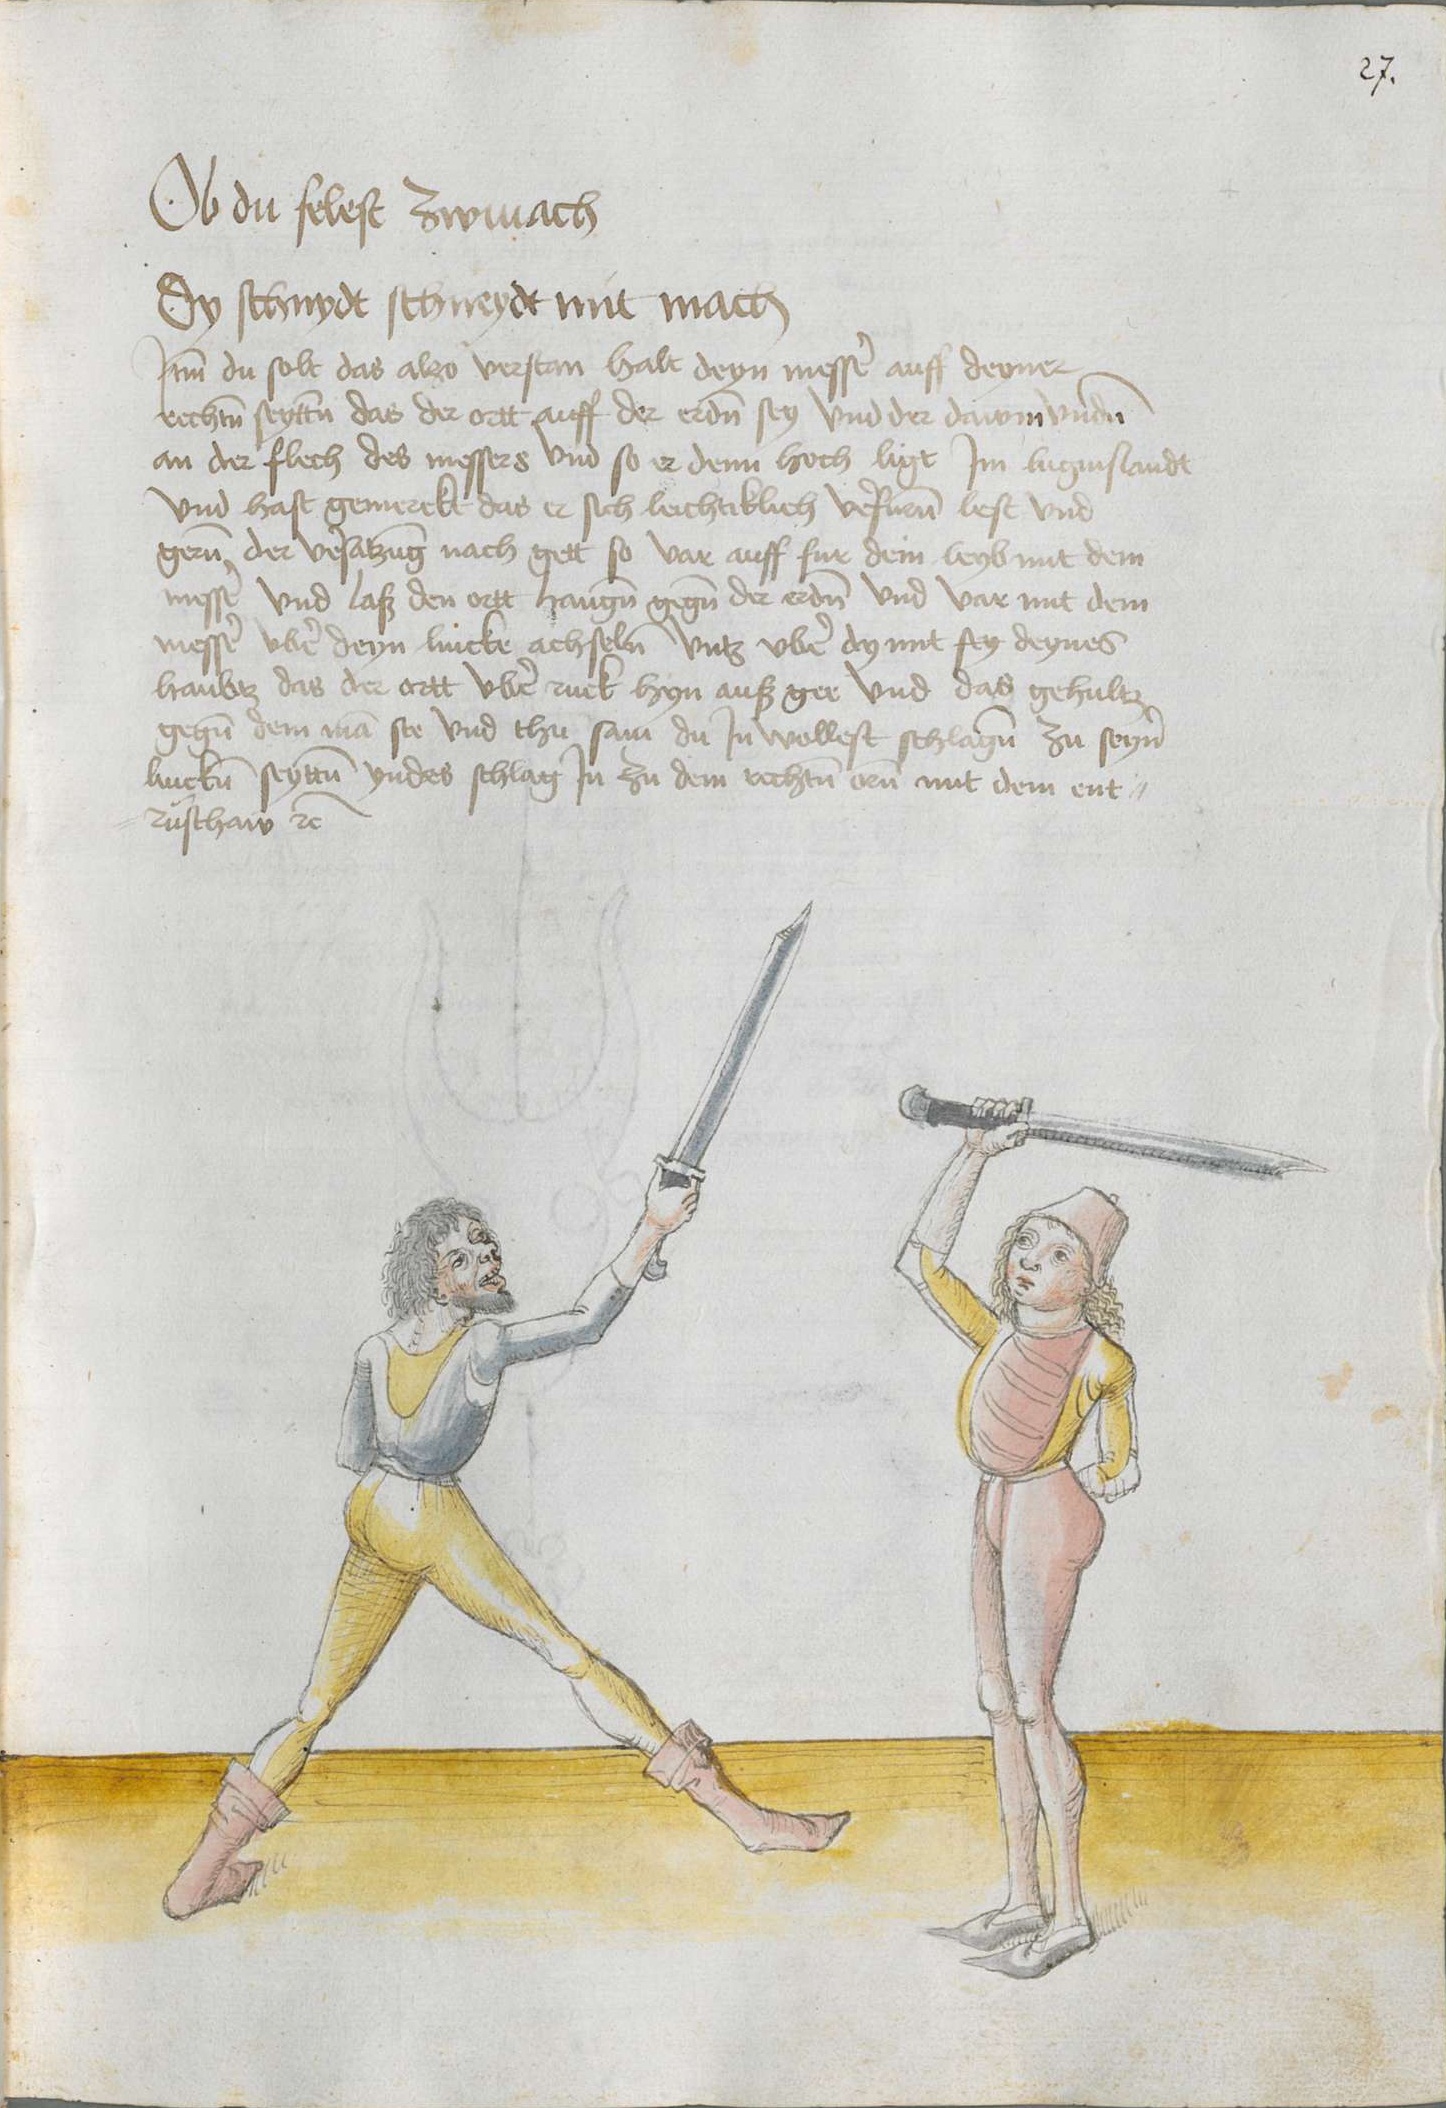 27.
Ob du felest zwmach
Dy schnydt schneydt mit mach
Jtm̄ du solt das alzo verstan halt deyn messer̄ auff deyner
rechtn̄ seyttn̄ das der ortt auff der erdn̄ sey vnd der dawm vndn̄
an der flech des messers vnd so er denn hoch ligt Jm luginslandt
vnd hast gemerckt das er sich leichtiklich ver̄furn̄ lest vnd
gern̄ der ver̄satzuḡ nach gett so var auff fur dein leyb mit dem
messer̄ vnd laß den ortt hangn̄ gegn̄ der erdn̄ vnd var mit dem
messer̄ vber̄ deyn lincke achseln̄ vntz vber̄ dy mit sey deynes
haubtz das der ortt vber̄ ruck hyn auß gee vnd das gehultz
gegn̄ dem mā ste vnd thu sam du Jn wollest schlagn̄ zu seyn̄
linckn̄ seyttn̄ yndes schlag Jn zu dem rechtn̄ orn̄ mit dem ent〃
rusthaw rc̄